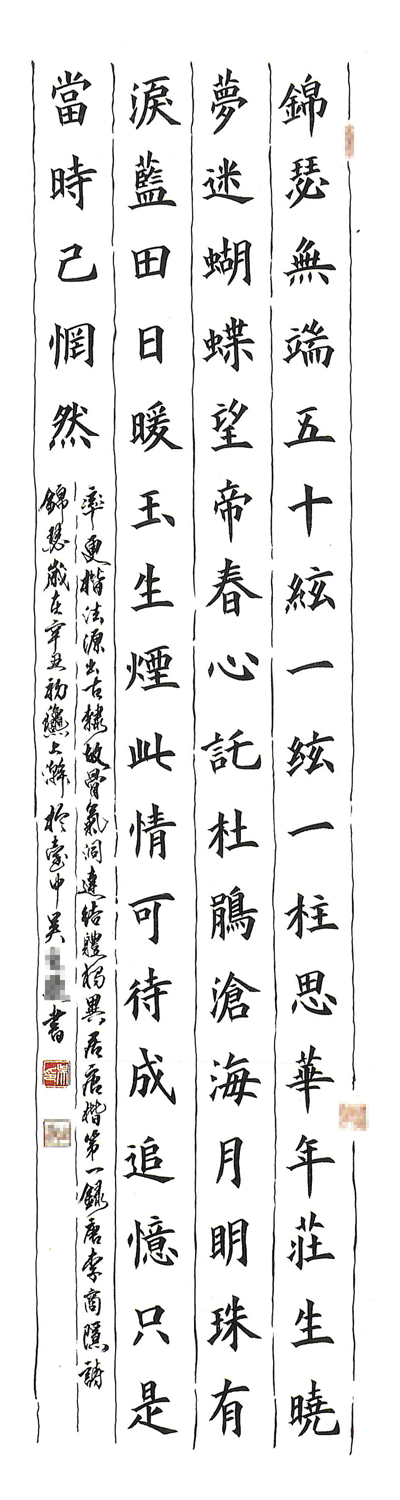 錦瑟無端五十絃一絃一柱思華年莊生曉
夢迷蝴蝶望帝春心託杜鵑滄海月明珠有
淚藍田日暖玉生煙此情可待成追憶只是
當時已惘然
率更楷法源出古隸故骨氣洞達結體獨異居唐楷第一錄唐李商隱詩
錦瑟歲在辛丑初上澣於臺中吳書